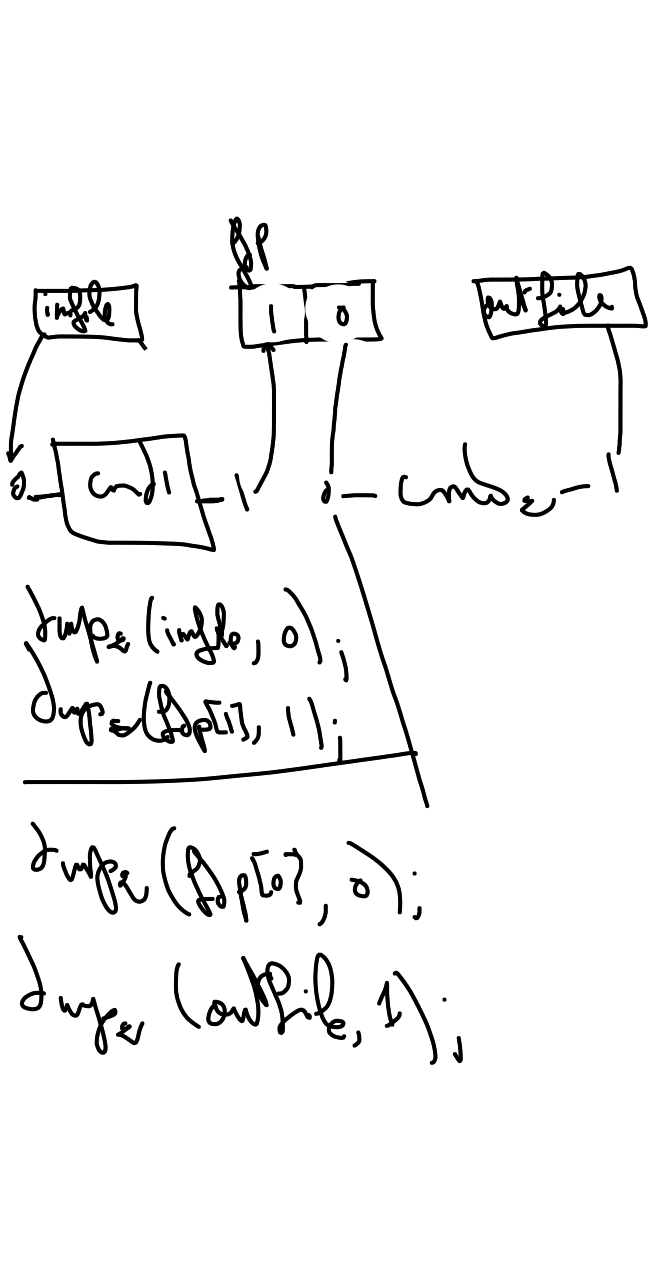 fdp
infile 1 0 outfile
0 cmd1 1 0 cmd2 1
dup2 (infile, 0);
dup2 (fdp[1], 1);
dup2 (fdp[0], 0);
dup2 (outfile, 1);